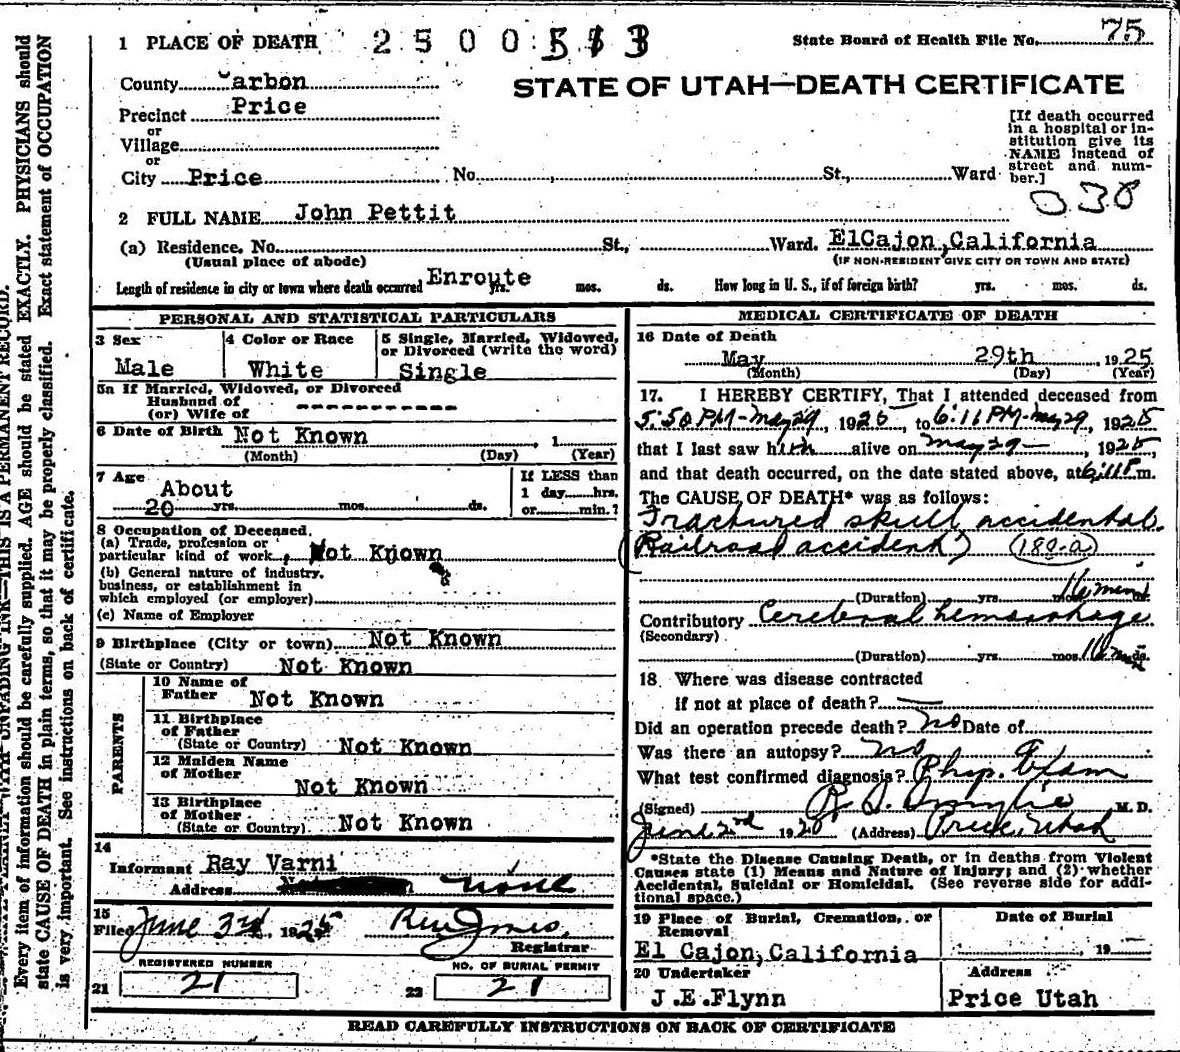 1 PLACE OF DEATH 2500513 State Board of Health File No. 75
County Carbon
STATE OF UTAH—DEATH CERTIFICATE
Precinct Price
or
Village
or
City Price No. St., Ward
[If death occurred
in a hospital or in-
stitution give its
NAME instead of
street and num-
ber.]
038
2 FULL NAME John Pettit
(a) Residence, No. St., Ward. ElCajon, California
(Usual place of abode) (IF NON-RESIDENT GIVE CITY OR TOWN AND STATE)
Length of residence in city or town where death occurred Enroute yrs. mos. ds. How long in U. S., if of foreign birth? yrs. mos. ds.
PERSONAL AND STATISTICAL PARTICULARS
3 Sex
Male
4 Color or Race
White
5 Single, Married, Widowed,
or Divorced (write the word)
Single
5a If Married, Widowed, or Divorced
Husband of
(or) Wife of
6 Date of Birth Not Known , 1
(Month) (Day) (Year)
7 Age About
20 yrs. mos. ds.
If LESS than
1 day hrs.
or min.?
8 Occupation of Deceased.
(a) Trade, profession or
particular kind of work, Not Known
(b) General nature of industry,
business, or establishment in
which employed (or employer)
(c) Name of Employer
9 Birthplace (City or town) Not Known
(State or Country) Not Known
PARENTS
10 Name of
Father Not Known
11 Birthplace
of Father
(State or Country) Not Known
12 Maiden Name
of Mother
Not Known
13 Birthplace
of Mother
(State or Country) Not Known
14
Informant Ray Varni
Address none
15
Filed June 3rd, 1925
Registrar
REGISTERED NUMBER
21 21
NO. OF BURIAL PERMIT
22 21
MEDICAL CERTIFICATE OF DEATH
16 Date of Death
May 29th 1925
(Month) (Day) (Year)
17. I HEREBY CERTIFY, That I attended deceased from
5:50 PM - May 29, 1925, to 6:11 PM - May 29, 1925
that I last saw him alive on May 29, 1925,
and that death occurred, on the date stated above, at 6:11 P.m.
The CAUSE OF DEATH* was as follows:
Fractured skull accidental.
(Railroad accident) (180-a)
(Duration) yrs. mos. 16 min ds.
Contributory Cerebral hemorrhage
(Secondary)
(Duration) yrs. mos. 16 min ds.
18 Where was disease contracted
if not at place of death?
Did an operation precede death? no Date of
Was there an autopsy? no
What test confirmed diagnosis? Phys. Exam
(Signed) M. D.
June 2nd 1925 (Address) Price, Utah
*State the Disease Causing Death, or in deaths from Violent
Causes state (1) Means and Nature of Injury; and (2) whether
Accidental, Suicidal or Homicidal. (See reverse side for addi-
tional space.)
19 Place of Burial, Cremation, or
Removal
El Cajon, California
Date of Burial
19
20 Undertaker
J.E.Flynn
Address
Price Utah
READ CAREFULLY INSTRUCTIONS ON BACK OF CERTIFICATE
THIS IS A PERMANENT RECORD.
Every item of information should be carefully supplied. AGE should be stated EXACTLY. PHYSICIANS should
state CAUSE OF DEATH in plain terms, so that it may be properly classified. Exact statement of OCCUPATION
is very important. See instructions on back of certificate.